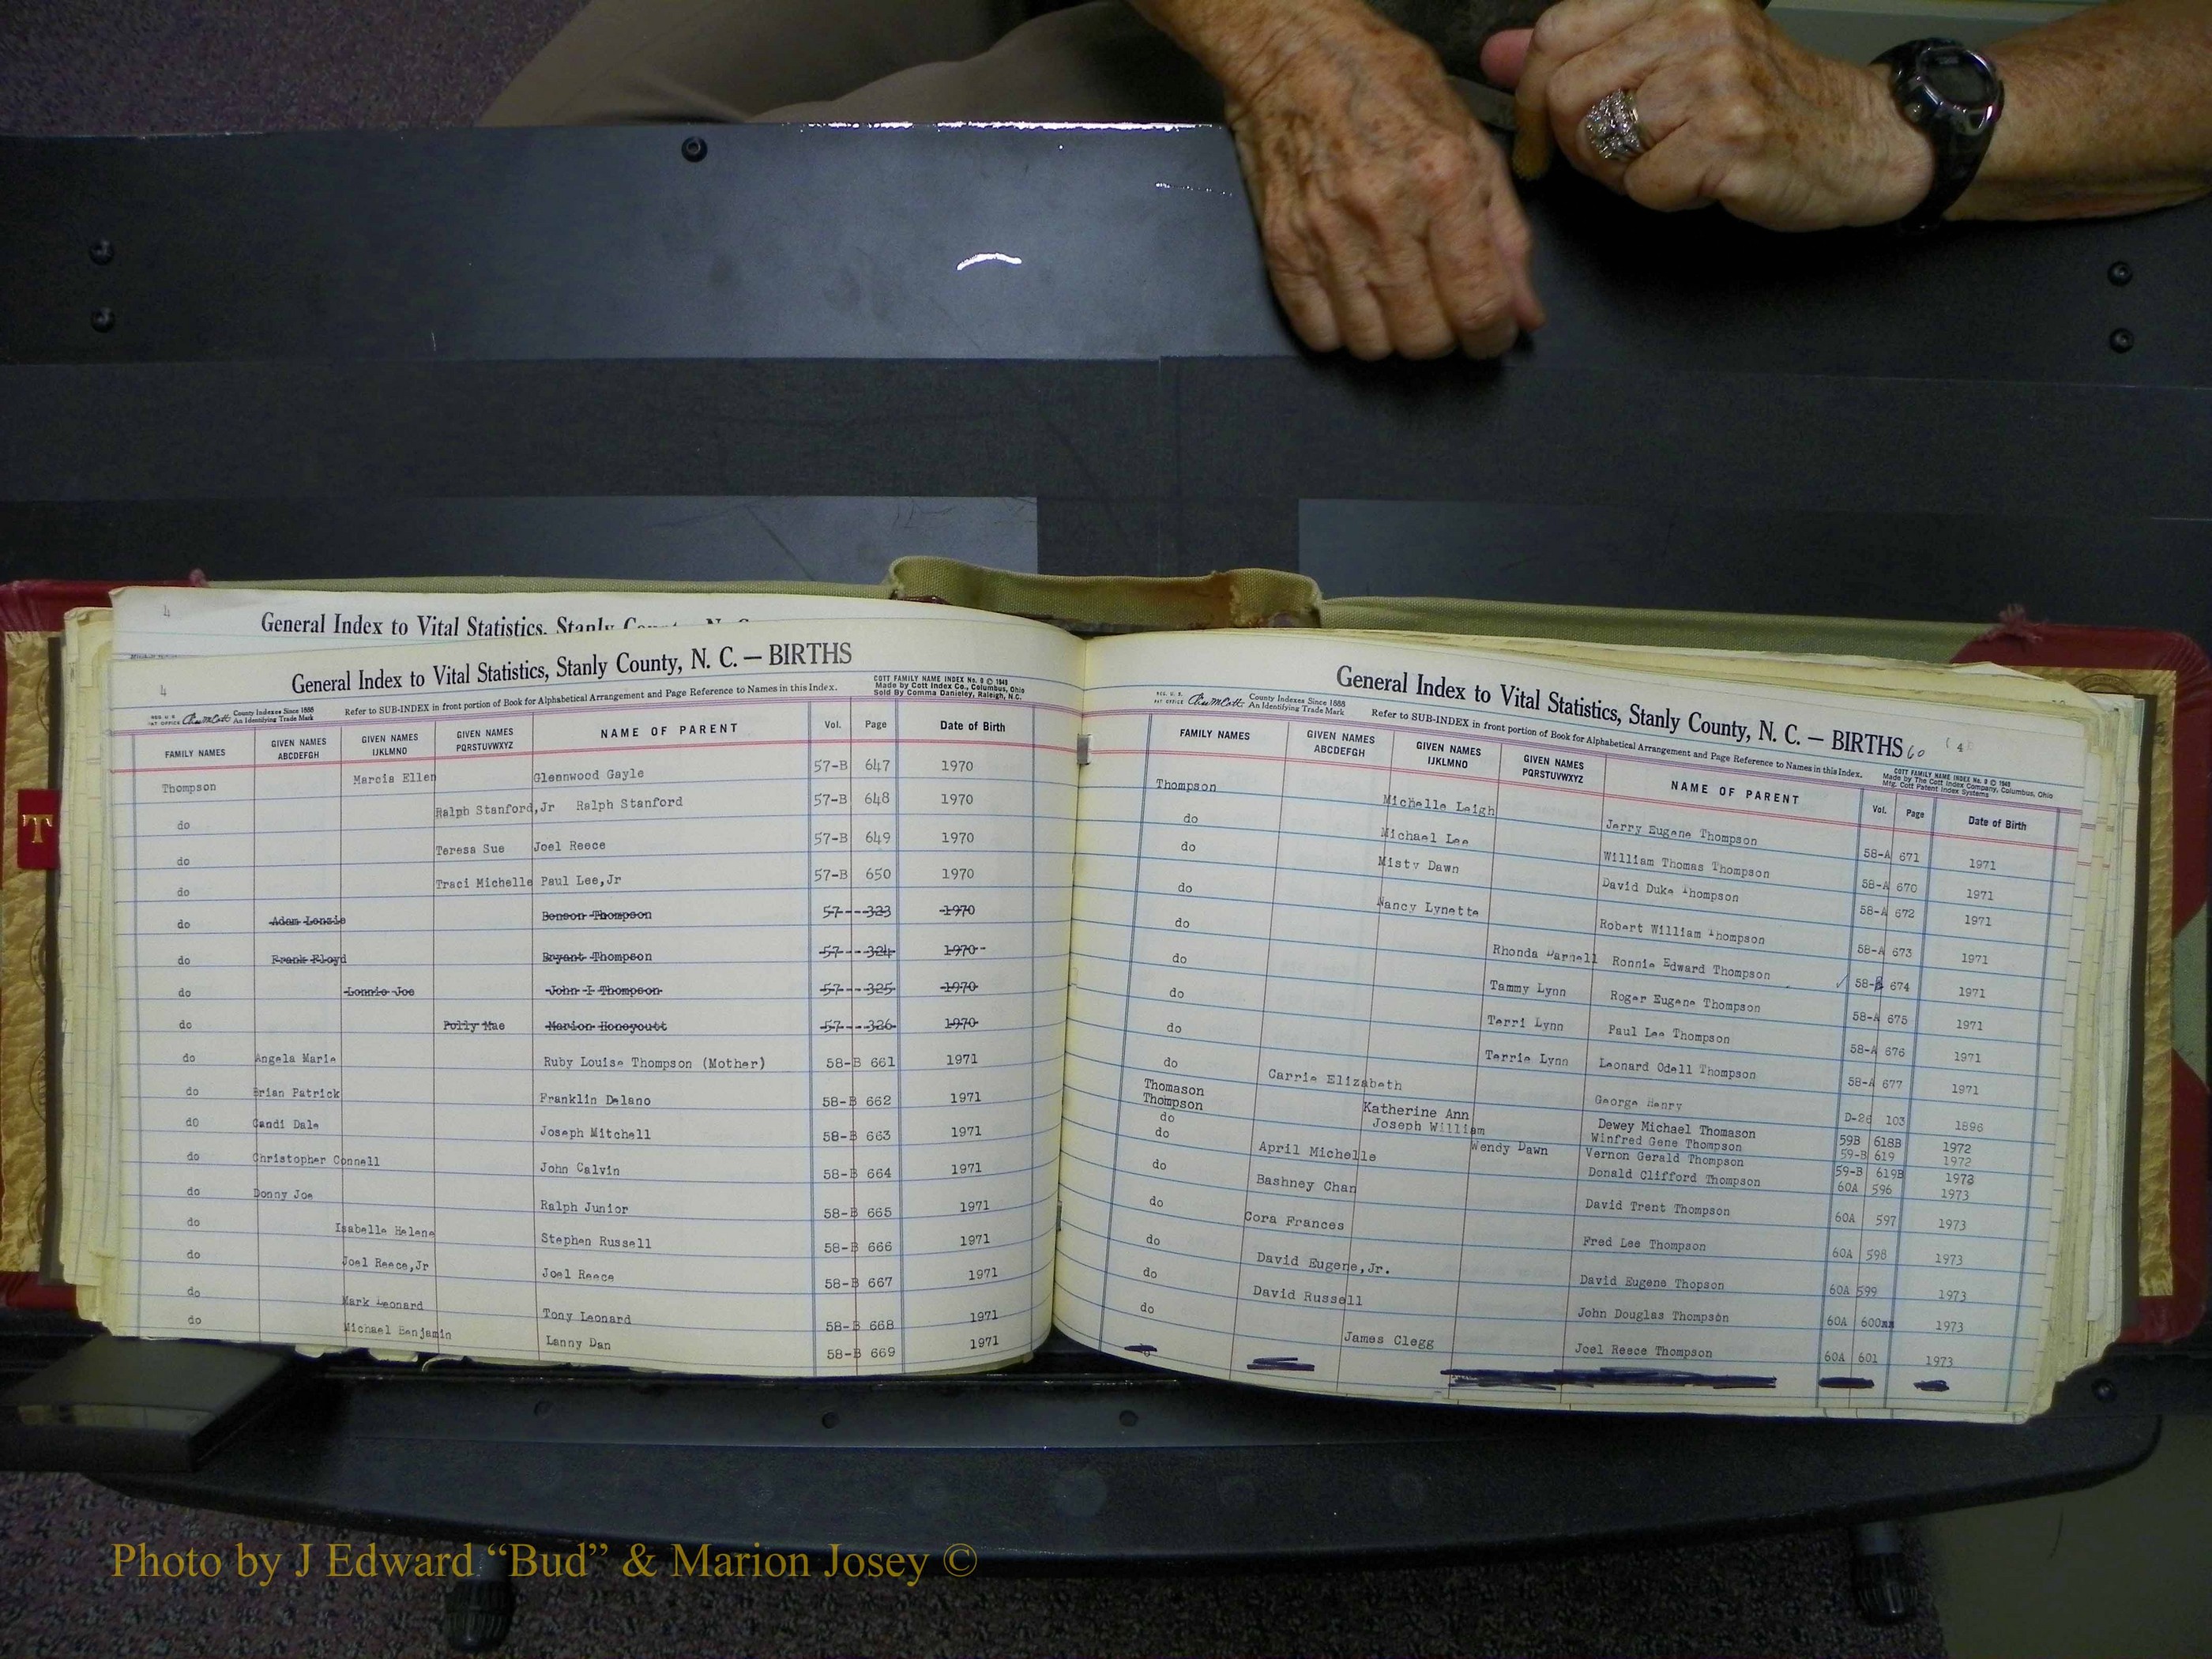 4
General Index to Vital Statistics, Stanly County, N. C.
4
General Index to Vital Statistics, Stanly County, N. C. — BIRTHS
COTT FAMILY NAME INDEX No. 9 © 1949
Made by Cott Index Co., Columbus, Ohio
Sold By Comma Danieley, Raleigh, N.C.
County Indexes Since 1888
An Identifying Trade Mark
Refer to SUB-INDEX in front portion of Book for Alphabetical Arrangement and Page Reference to Names in this Index.
FAMILY NAMES GIVEN NAMES ABCDEFGH GIVEN NAMES IJKLMNO GIVEN NAMES PQRSTUVWXYZ NAME OF PARENT Vol. Page Date of Birth
Thompson Marcia Ellen Glennwood Gayle 57-B 647 1970
do Ralph Stanford,Jr Ralph Stanford 57-B 648 1970
do Teresa Sue Joel Reece 57-B 649 1970
do Traci Michelle Paul Lee,Jr 57-B 650 1970
do Adam Lenzie Benson Thompson 57---323 1970
do Frank Floyd Bryant Thompson 57---324 1970
do Lonnie Joe John I Thompson 57---325 1970
do Polly Mae Marion Honeycutt 57---326 1970
do Angela Marie Ruby Louise Thompson (Mother) 58-B 661 1971
do Brian Patrick Franklin Delano 58-B 662 1971
dO Candi Dale Joseph Mitchell 58-B 663 1971
do Christopher Connell John Calvin 58-B 664 1971
do Donny Joe Ralph Junior 58-B 665 1971
do Isabelle Helene Stephen Russell 58-B 666 1971
do Joel Reece,Jr Joel Reece 58-B 667 1971
do Mark Leonard Tony Leonard 58-B 668 1971
do Michael Benjamin Lanny Dan 58-B 669 1971
General Index to Vital Statistics, Stanly County, N. C. — BIRTHS 60 4
County Indexes Since 1888
An Identifying Trade Mark
Refer to SUB-INDEX in front portion of Book for Alphabetical Arrangement and Page Reference to Names in this Index.
COTT FAMILY NAME INDEX No. 9 © 1949
Made by The Cott Index Company, Columbus, Ohio
Mfg. Cott Patent Index Systems
FAMILY NAMES GIVEN NAMES ABCDEFGH GIVEN NAMES IJKLMNO GIVEN NAMES PQRSTUVWXYZ NAME OF PARENT Vol. Page Date of Birth
Thompson Michelle Leigh Jerry Eugene Thompson 58-A 671 1971
do Michael Lee William Thomas Thompson 58-A 670 1971
do Misty Dawn David Duke Thompson 58-A 672 1971
do Nancy Lynette Robert William Thompson 58-A 673 1971
do Rhonda Darnell Ronnie Edward Thompson 58-B 674 1971
do Tammy Lynn Roger Eugene Thompson 58-A 675 1971
do Terri Lynn Paul Lee Thompson 58-A 676 1971
do Terrie Lynn Leonard Odell Thompson 58-A 677 1971
do Carrie Elizabeth George Henry D-26 103 1896
Thomason Katherine Ann Dewey Michael Thomason 59B 618B 1972
Thompson Joseph William Winfred Gene Thompson 59-B 619 1972
do Wendy Dawn Vernon Gerald Thompson 59-B 619B 1973
do April Michelle Donald Clifford Thompson 60A 596 1973
do Bashney Chan David Trent Thompson 60A 597 1973
do Cora Frances Fred Lee Thompson 60A 598 1973
do David Eugene,Jr. David Eugene Thopson 60A 599 1973
do David Russell John Douglas Thompson 60A 600 1973
do James Clegg Joel Reece Thompson 60A 601 1973
T
Photo by J Edward “Bud” & Marion Josey ©